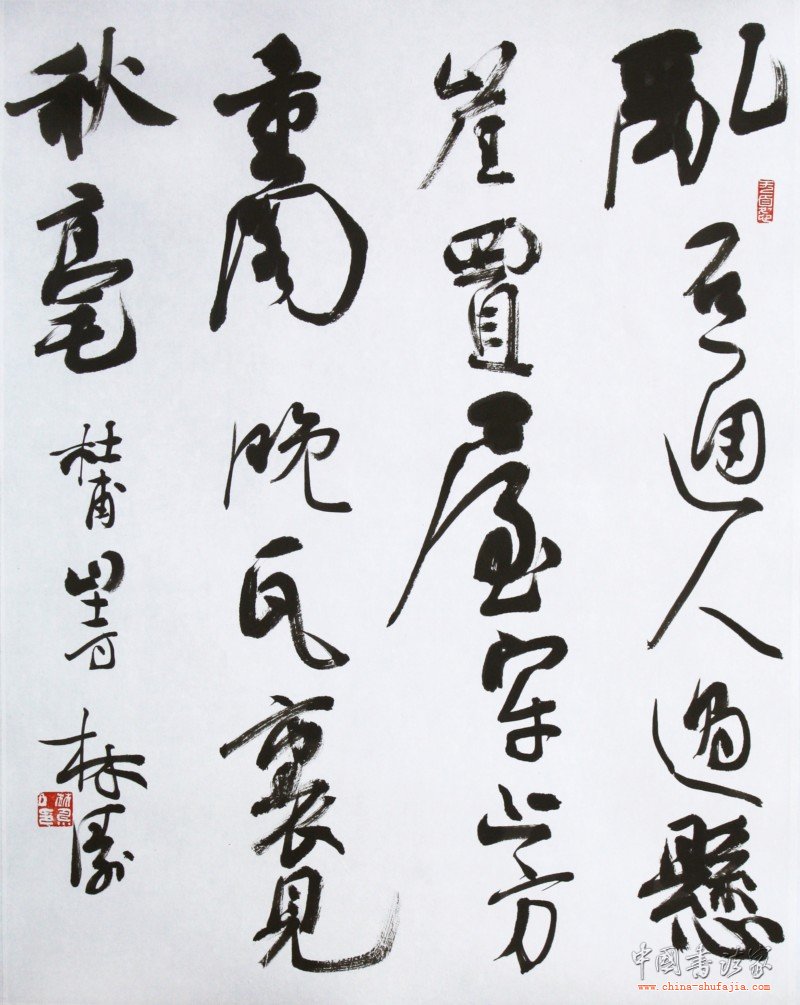 亂石通人過懸
崖置屋牢上方
重閣晚瓦裏見
秋毫
杜甫山寺 林
中國書法家
www.china-shufajia.com